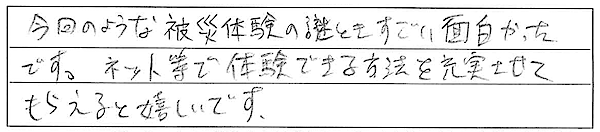 今回のような被災体験の謎ときすごい面白かった
です。ネット等で体験できる方法を充実させて
もらえると嬉しいです。